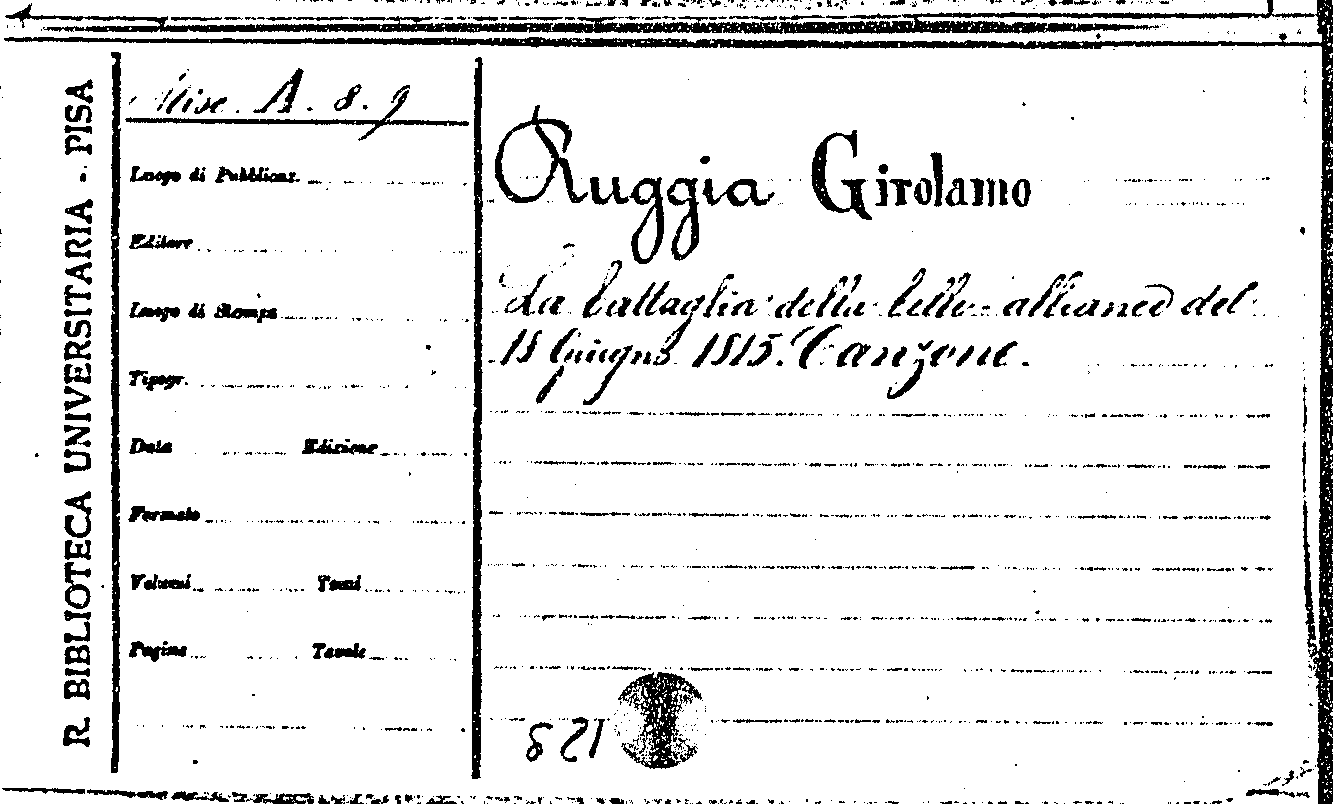 R. BIBLIOTECA UNIVERSITARIA - PISA
Misc. A. 8. 9
Luogo di Pubblicaz.
Editore
Luogo di Stampa
Tipogr.
Data Edizione
Formato
Volumi Tomi
Pagine Tavole
Ruggia Girolamo
La battaglia della belle-alliance del
18 Giugno 1815. Canzone.
821